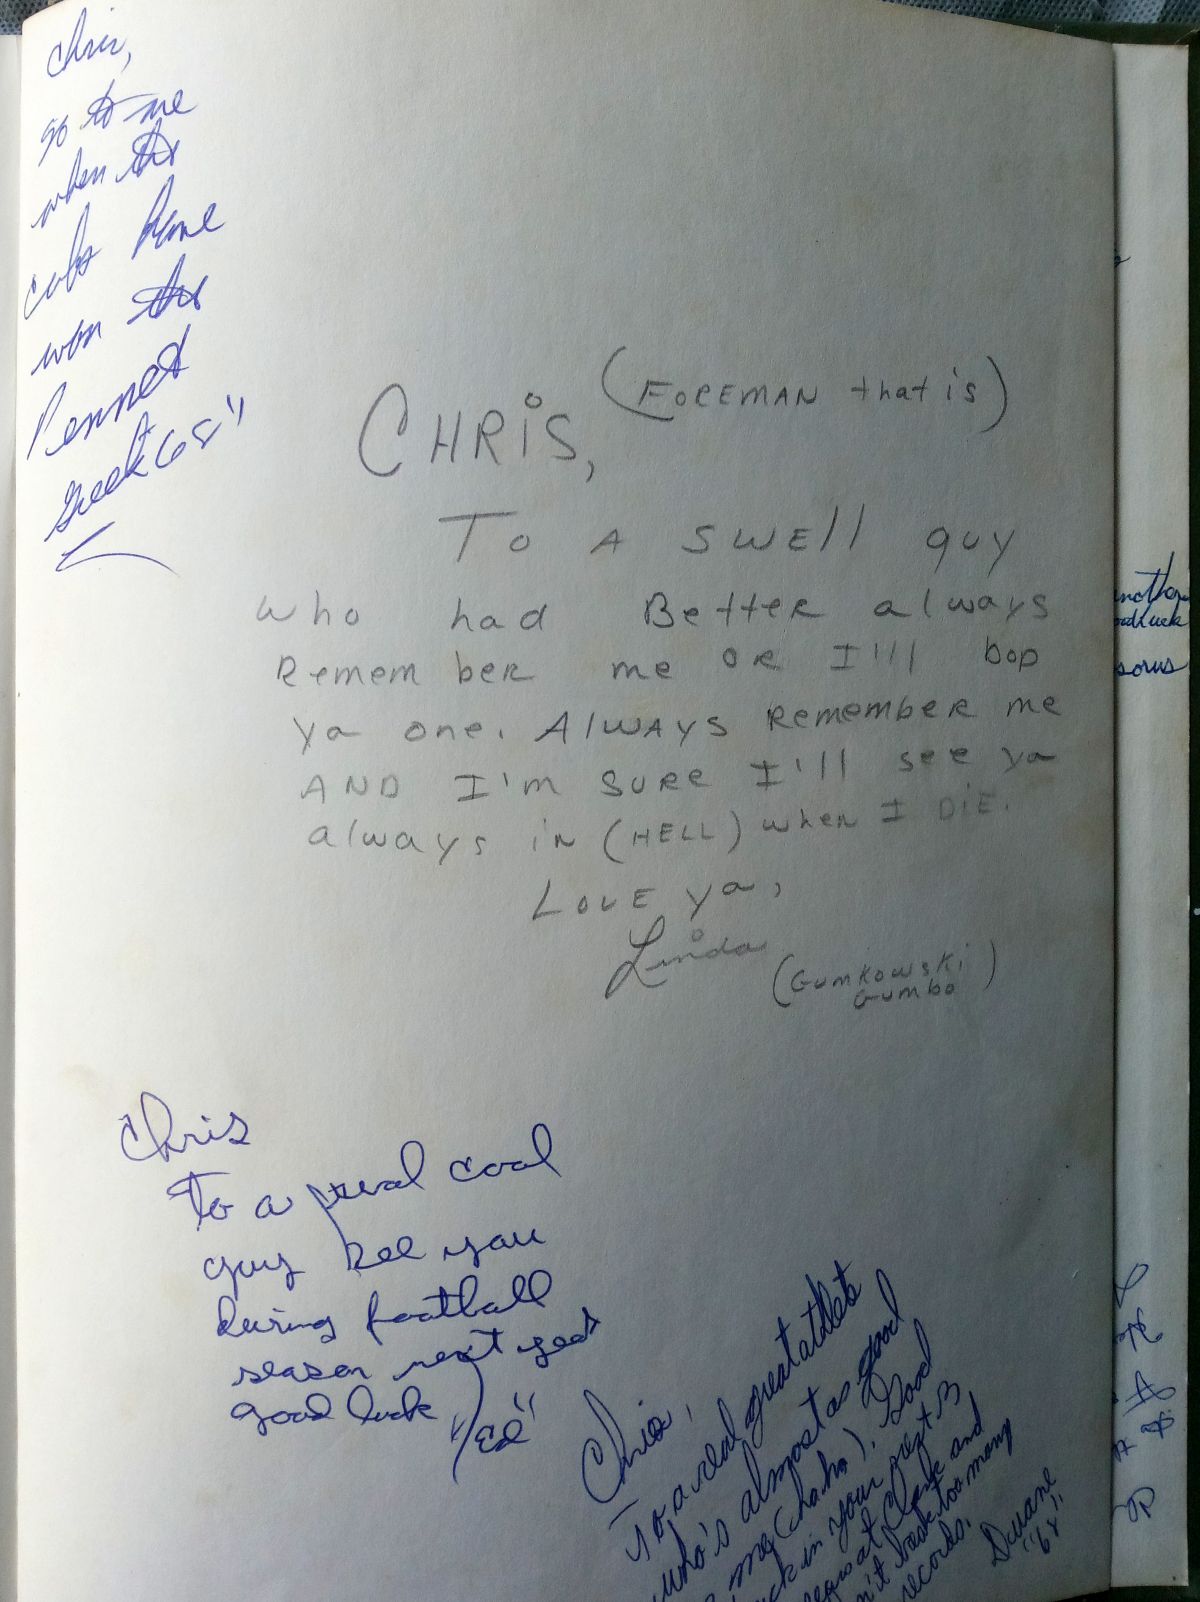 Chris,
go to me
when the
cubs have
won the
Pennet
Greek 68"
CHRiS, (FOREMAN that is)
To A swell guy
who had Better always
Remember me OR I'll bop
ya one. Always Remember me
AND I'm SURe I'll see ya
always in (HELL) when I DiE.
LOVE ya,
Linda
(Gumkowski
Gumbo)
Chris
To a real cool
guy see you
during football
season next year
good luck
"Ed"
Chris,
To, a real great athlete
who's almost as good
me (ha ha). Good
in your next 3
at Clark and
break too many
records.
Duane
'68'.
another
luck